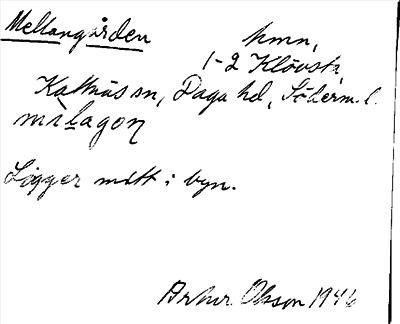 Mellangården
hmn,
1-2 Klövsta,
Kattnäs sn, Daga hd, Söderm. l.
mìlagoṇ
Ligger mitt i byn.
Arthur Olsson 1946